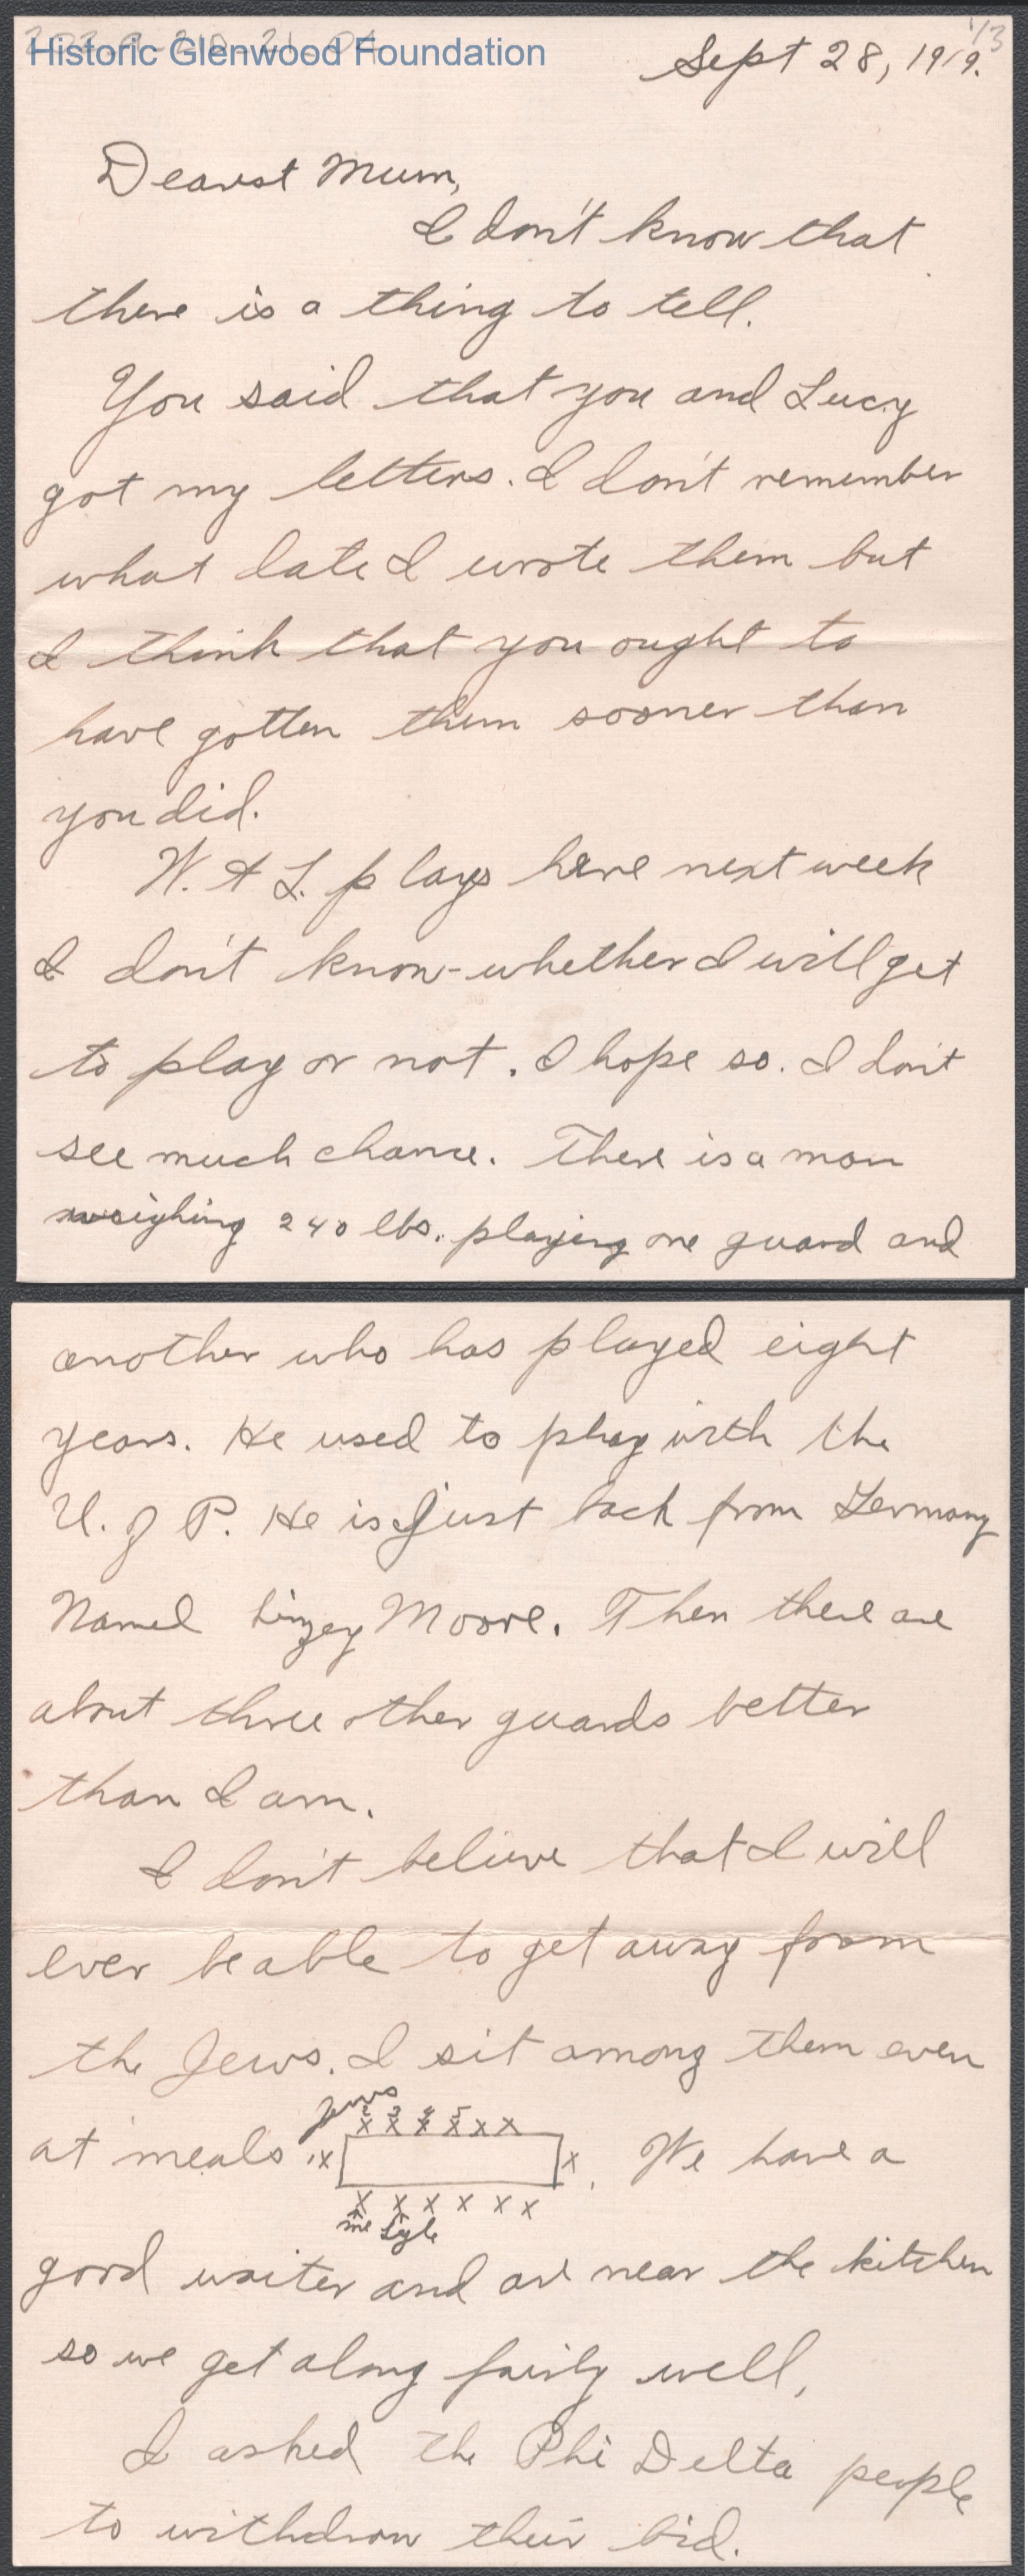 Historic Glenwood Foundation
1/3
Sept 28, 1919.
Dearest Mum,
I don't know that
there is a thing to tell.
You said that you and Lucy
got my letters. I don't remember
what date I wrote them but
I think that you ought to
have gotten them sooner than
you did.
W. & L. plays here next week
I don't know whether I will get
to play or not. I hope so. I don't
see much chance. There is a man
weighing 240 lbs. playing one guard and
another who has played eight
years. He used to play with the
U. of P. He is just back from Germany
Named Moore. Then there are
about three other guards better
than I am.
I don't believe that I will
ever be able to get away from
the Jews. I sit among them even
Jews
2 3 4 5
x x x x x x
at meals. x x . We have a
x x x x x x
me Lyle
good waiter and are near the kitchen
so we get along fairly well,
I asked the Phi Delta people
to withdraw their bid.